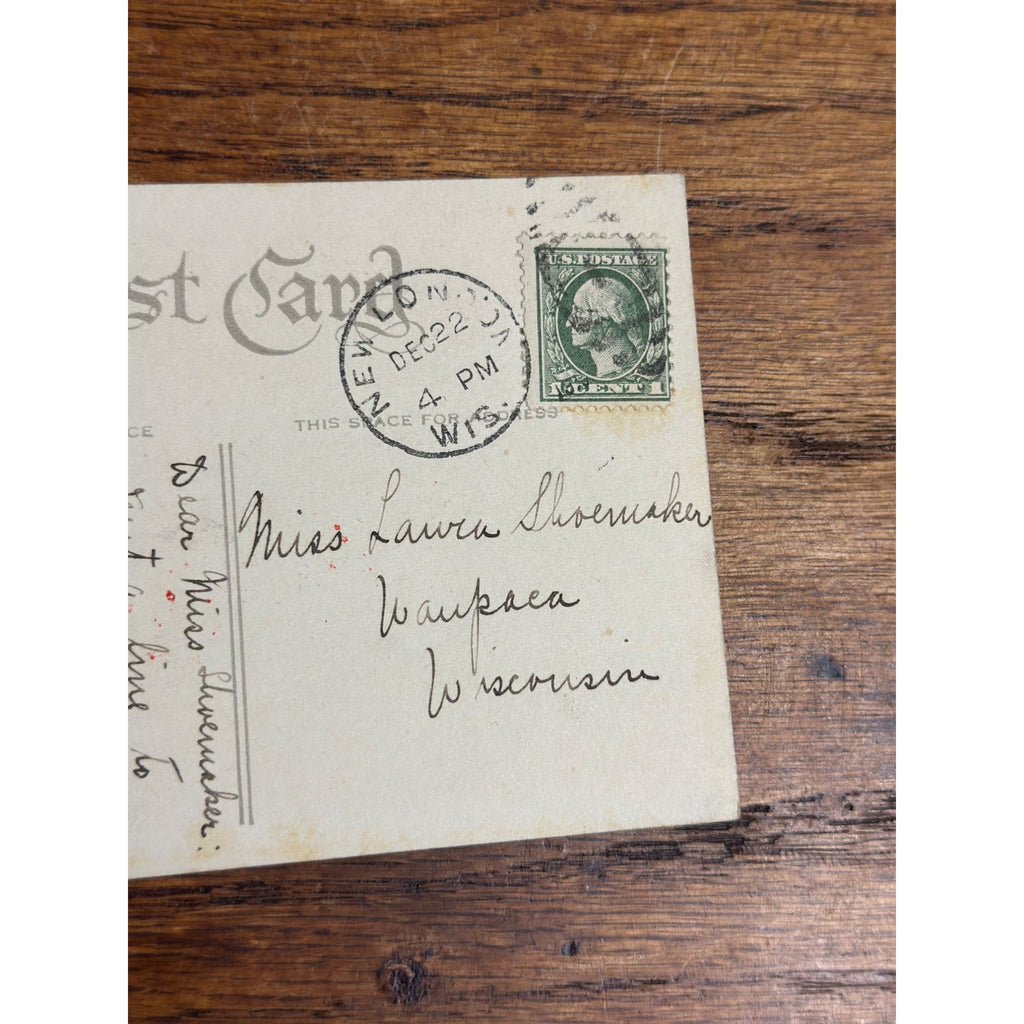 st Card
NEW LONDON
DEC 22
4 PM
WIS.
U.S. POSTAGE
1 CENT 1
CE
THIS SPACE FOR ADDRESS
Miss Laura Shoemaker
Waupaca
Wisconsin
Dear Miss Shoemaker:
Just a line to